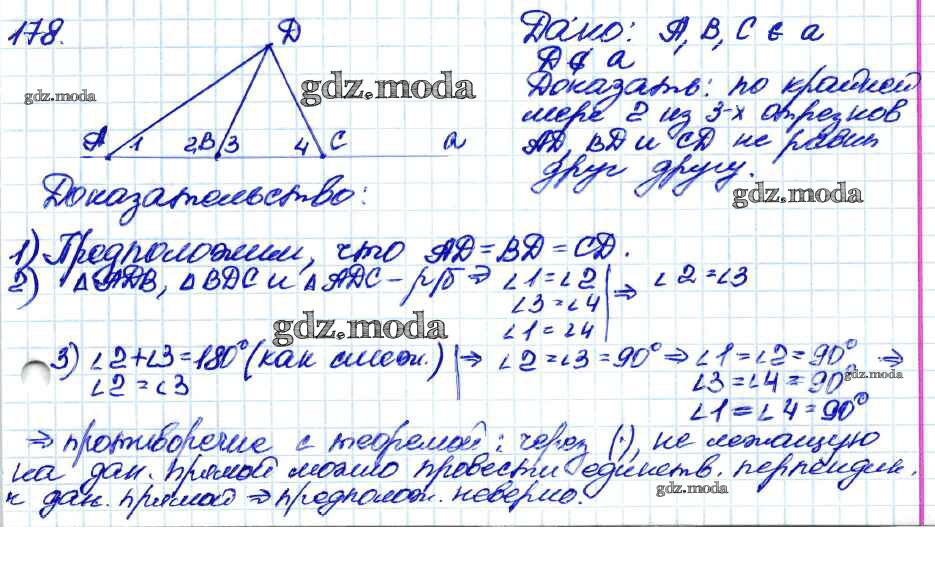 178.
D
A 1 2 B 3 4 C a
Дано: A, B, C ∈ a
D ∉ a
Доказать: по крайней
мере 2 из 3-х отрезков
AD, BD и CD не равны
друг другу.
gdz.moda
gdz.moda
gdz.moda
Доказательство:
1) Предположим, что AD = BD = CD.
2) △ADB, △BDC и △ADC – р/б ⇒ ∠1 = ∠2 | ⇒ ∠2 = ∠3
∠3 = ∠4
∠1 = ∠4
gdz.moda
3) ∠2 + ∠3 = 180° (как смежн.) | ⇒ ∠2 = ∠3 = 90° ⇒ ∠1 = ∠2 = 90° ⇒
∠2 = ∠3
∠3 = ∠4 = 90°
∠1 = ∠4 = 90°
gdz.moda
⇒ противоречие с теоремой: через (·), не лежащую
на дан. прямой можно провести единств. перпендик.
к дан. прямой ⇒ предполож. неверно.
gdz.moda